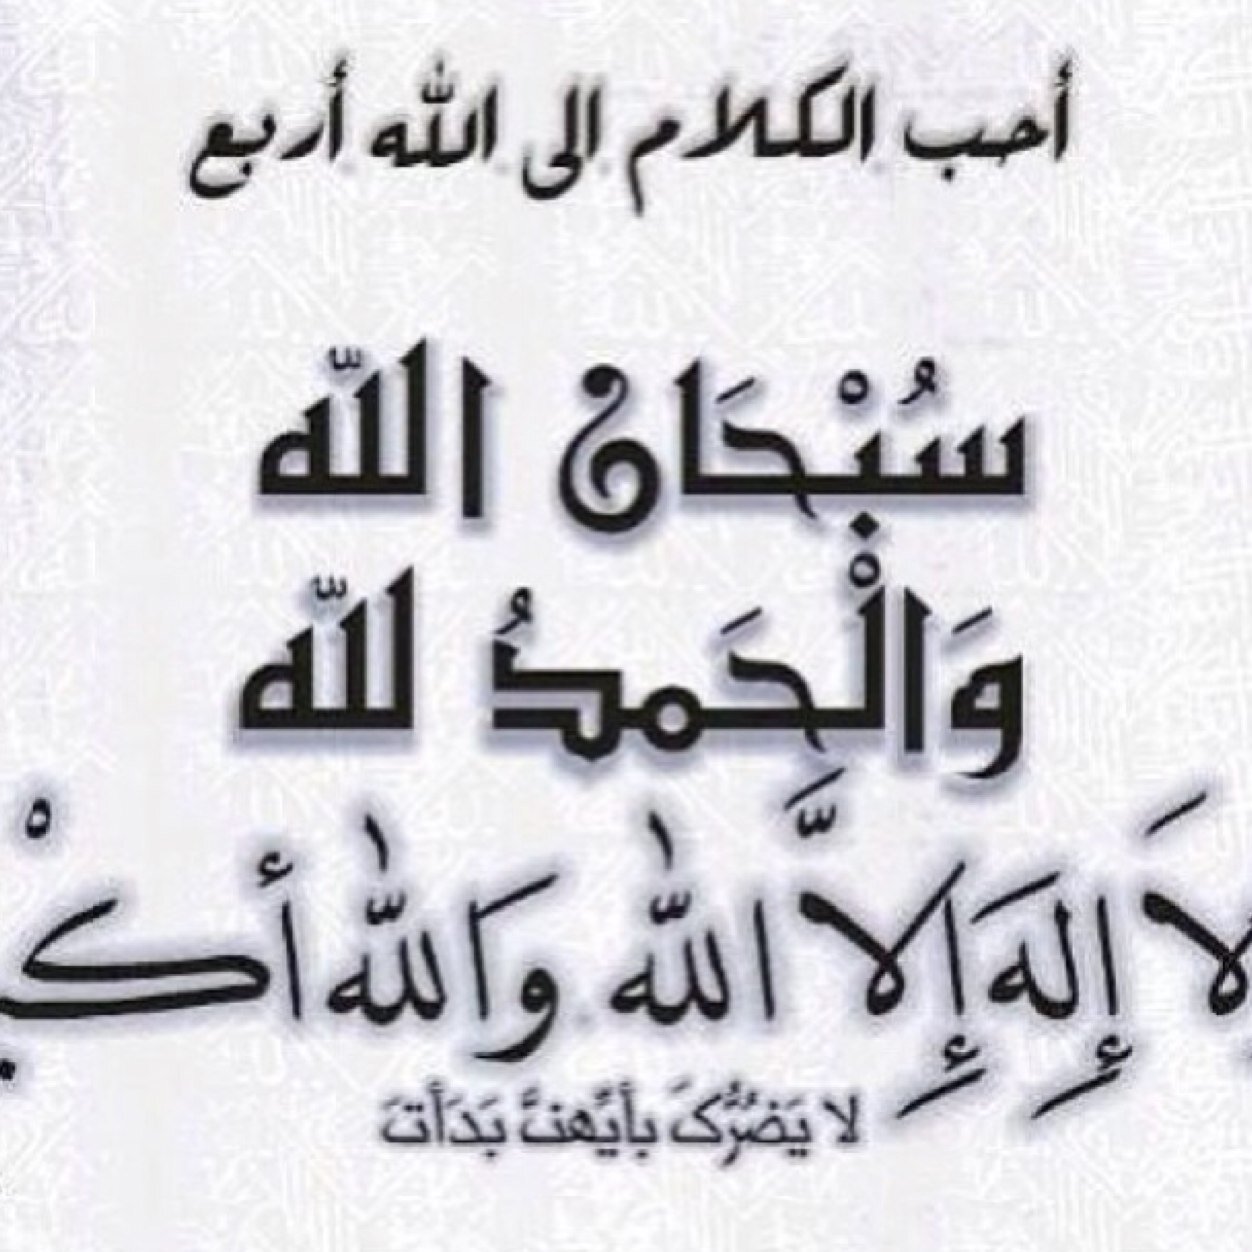 أحب الكلام الى الله أربع
سُبْحَان اللّه
وَالْحَمدُ للّه
لَا إِلهَ إِلاَّ اللّٰه وَاللّٰه أكْب
لا يَضُرُّكَ بأيَّهنَّ بَدَأتَ